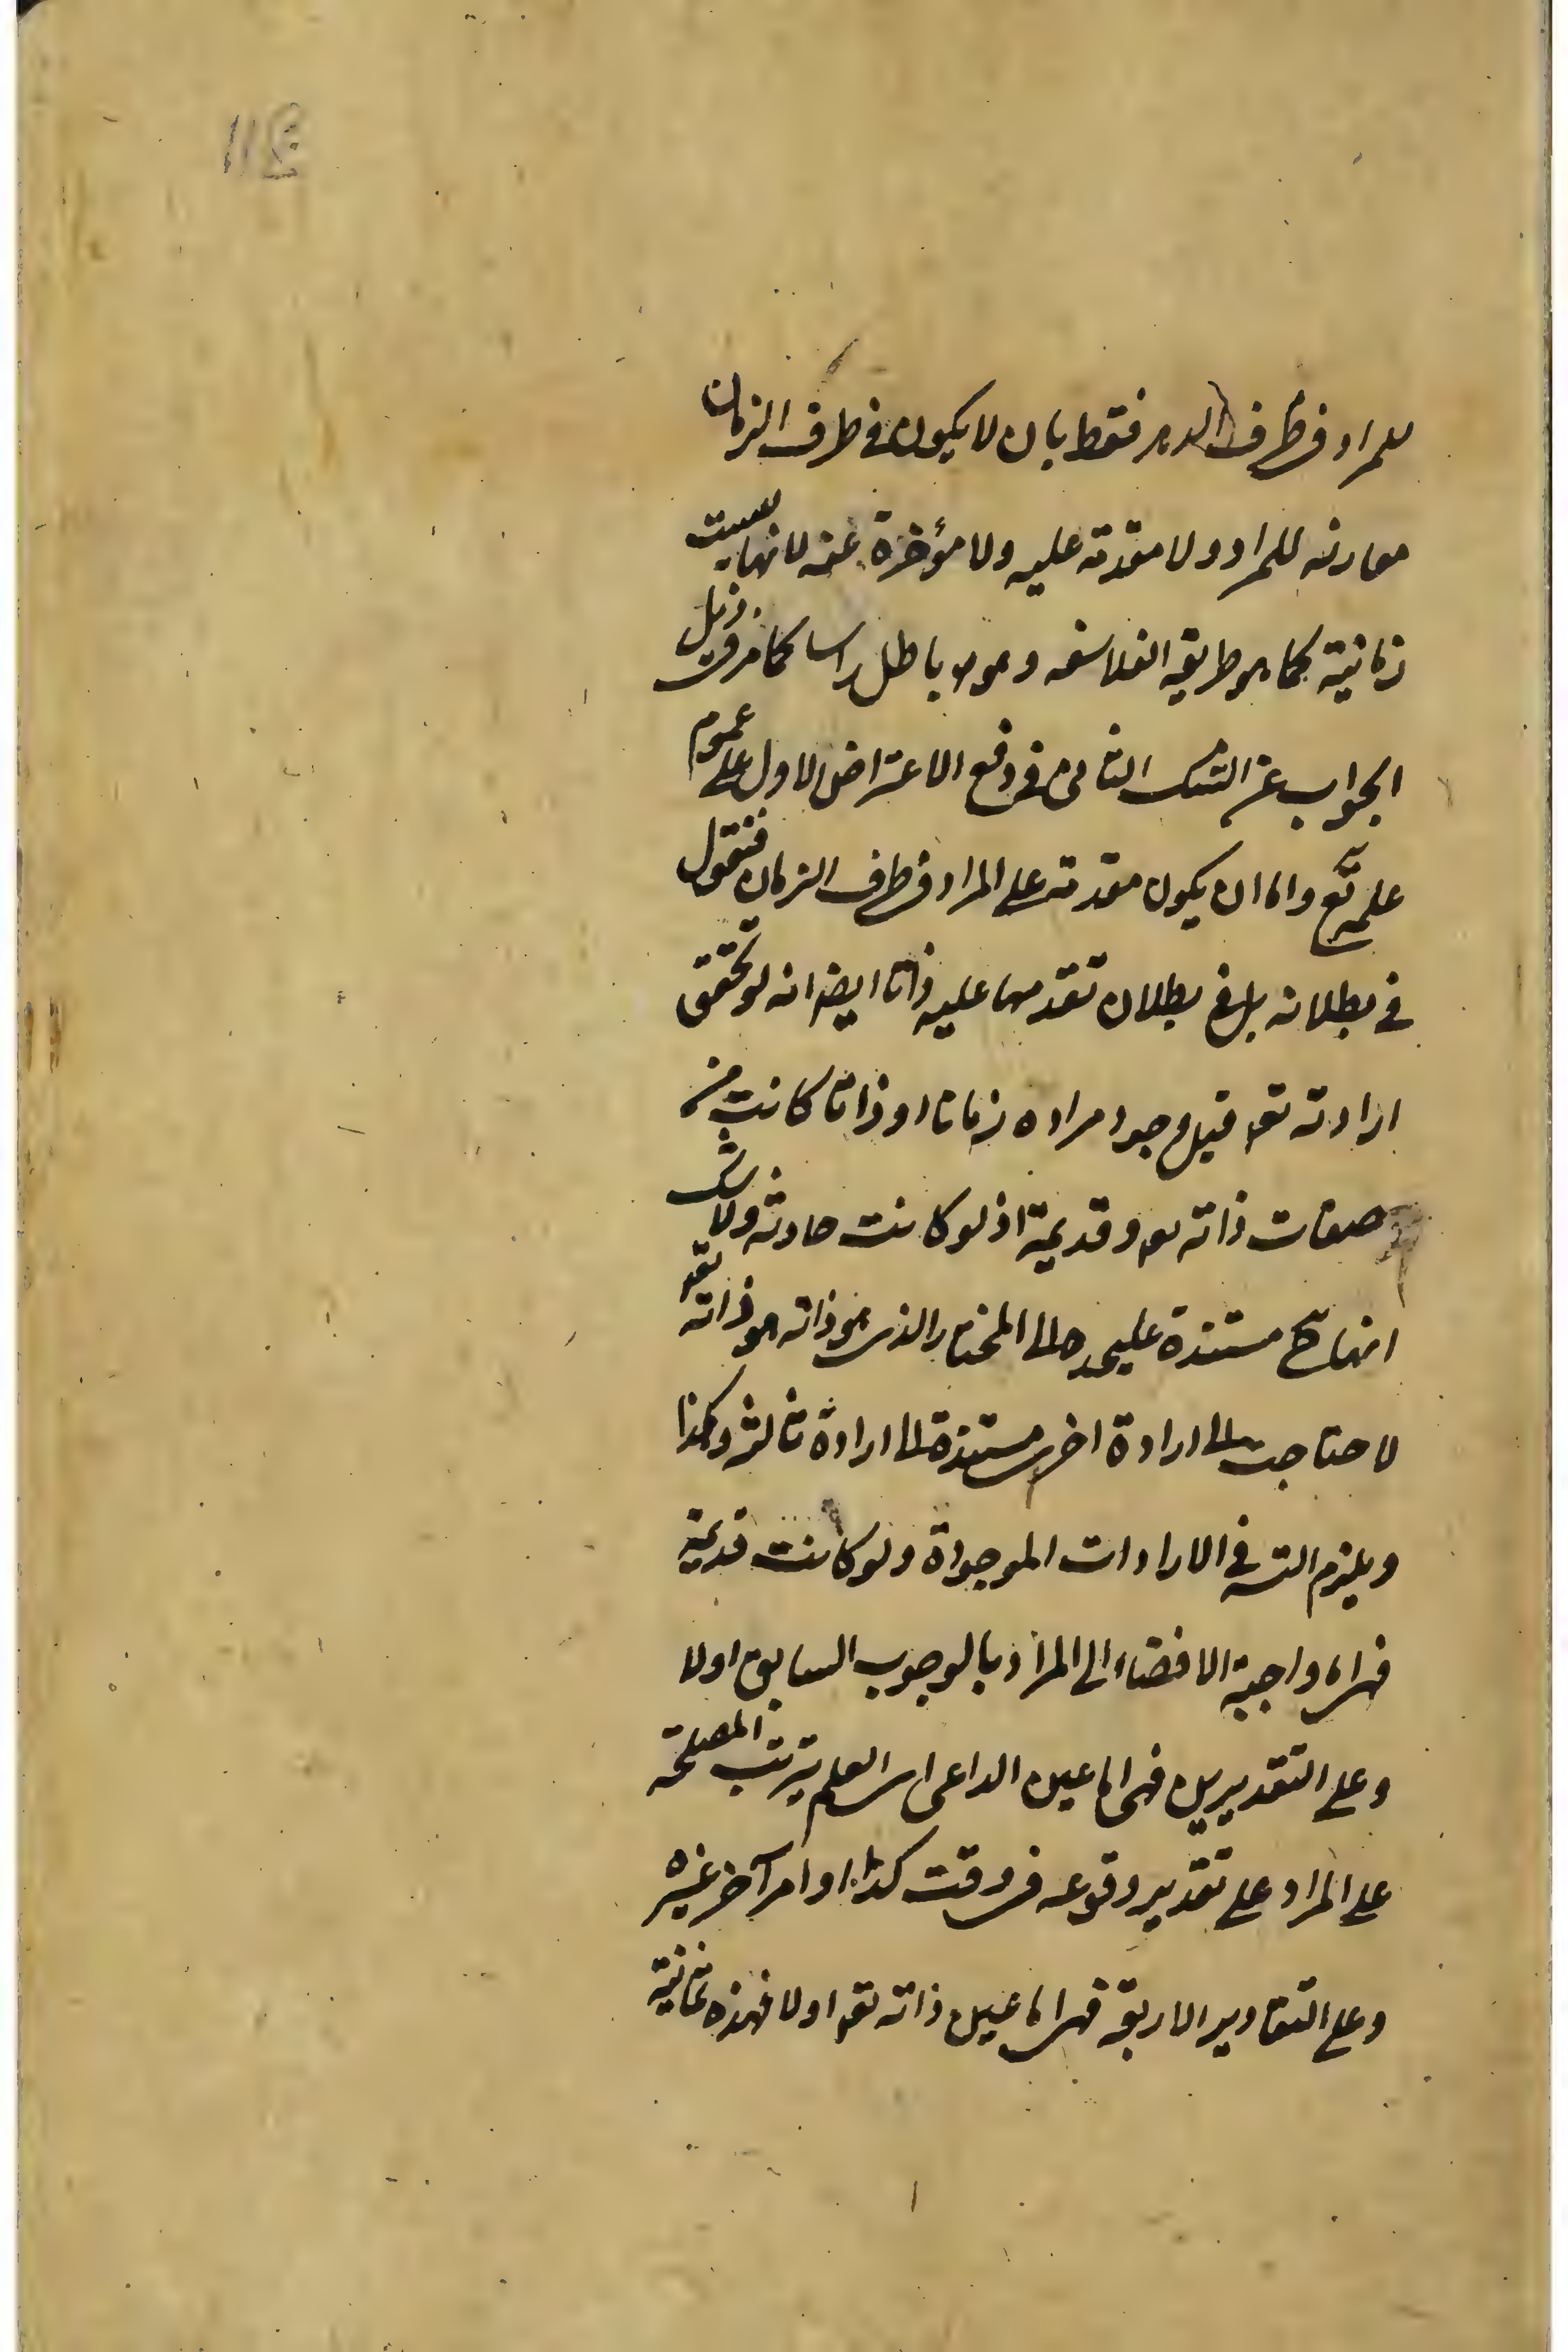 للمراد في ظرف الدهر فقط بان لا يكون في ظرف الزمان
مقارنه للمراد ولا مقدمة عليه ولا مؤخرة عنه لانها ليست
زمانية كما هو طريقة الفلاسفه وهو باطل راسا كما مر في ذيل
الجواب عن الشك الثاني في دفع الاعتراض الاول على عموم
علمه تع واما ان يكون مقدمة على المراد في ظرف الزمان فنقول
في بطلانه بل في بطلان تقدمها عليه ذاتا ايضا انه لو تحقق
ارادته تع قبل وجود مراده زمانا او ذاتا كانت من
صفات ذاته تع وقديمة اذ لو كانت حادثه ولا شك
انها ح مستندة عليحده الى المختار الذى هو ذاته هو ذاته تع
لاحتاجت الى ارادة اخرى مستندة الى ارادة ثالثة وهكذا
ويلزم التسه في الارادات الموجودة ولو كانت قديمة
فهى اما واجبة الافضاء الى المراد بالوجوب السابق او لا
وعلى التقديرين فهى اما عين الداعى اى العلم بترتب المصلحة
على المراد على تقدير وقوعه في وقت كذا او امر آخر غيره
وعلى التقادير الاربعة فهى اما عين ذاته تع او لا فهذه ثمانية